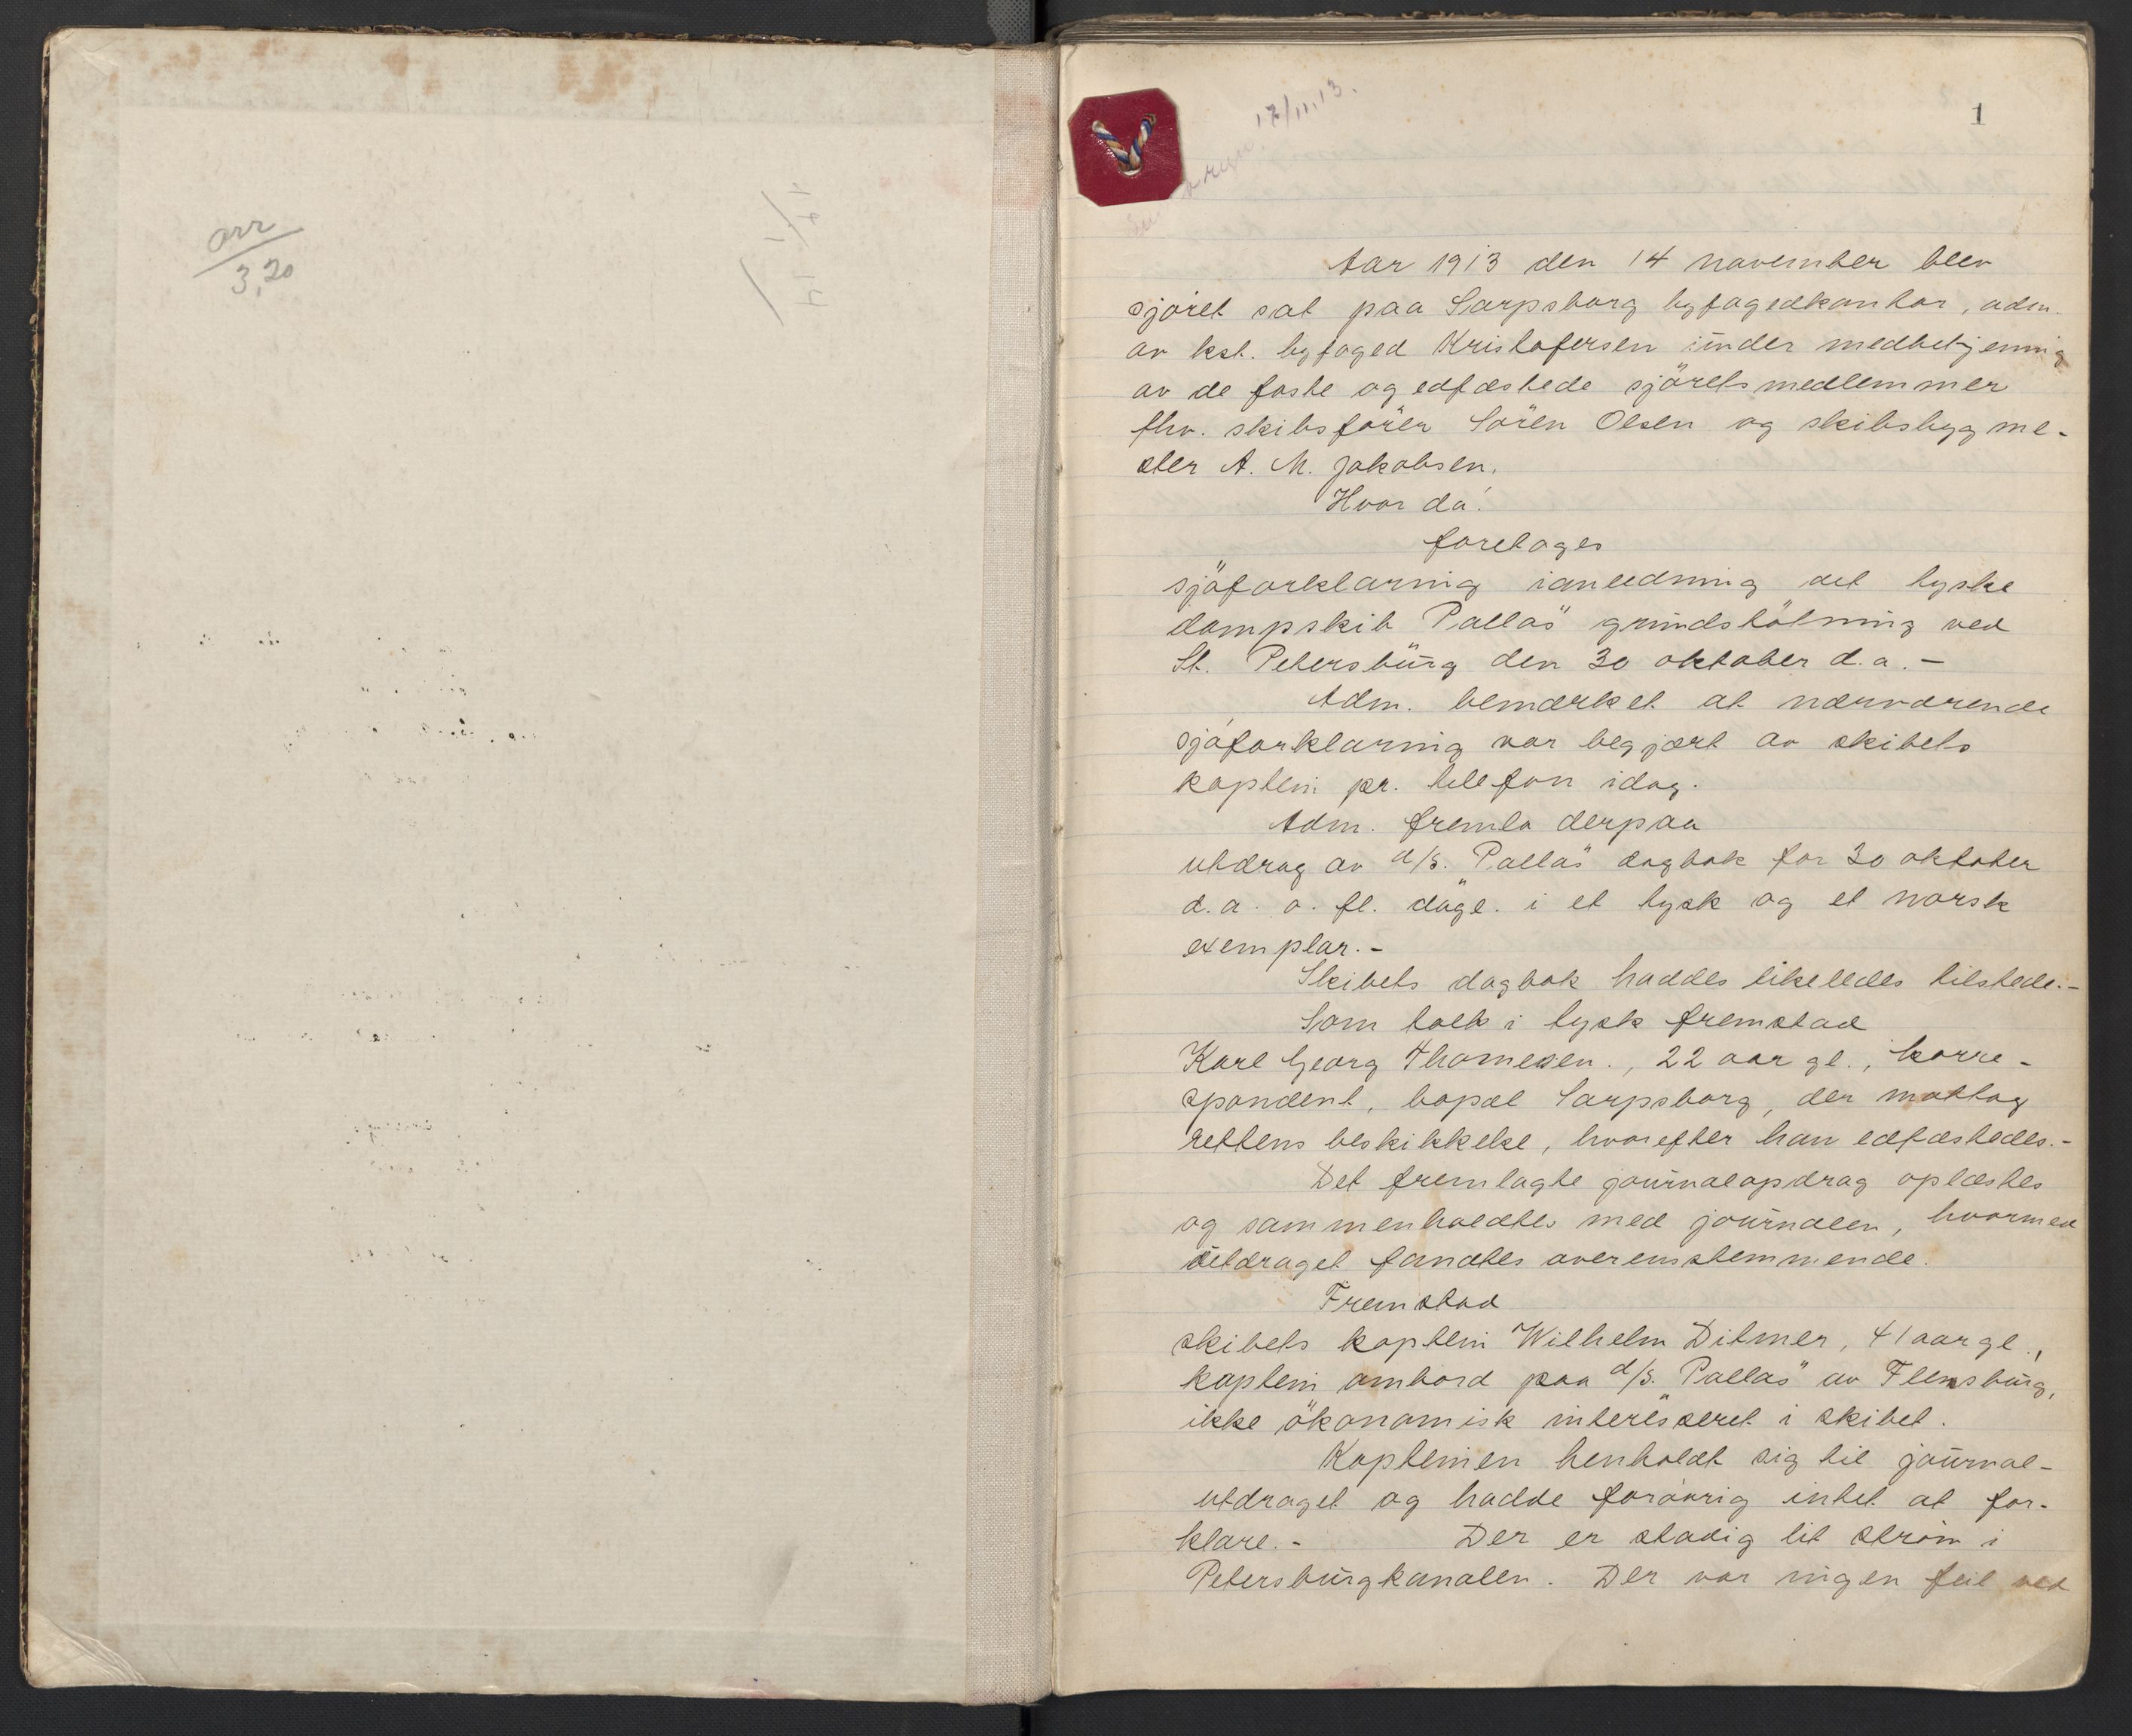 arr
3,20
17/11.13.
1
Aar 1913 den 14 november blev
sjöret sat paa Sarpsborg byfogedkontor, adm.
av kst. byfoged Kristofersen under medbetjening
av de faste og edfæstede sjöretsmedlemmer
fhv. skibsförer Sören Olsen og skibsbygme-
ster A. M. Jakobsen.
Hvor da!
foretoges
sjöforklaring ianledning det tyske
dampskib "Pallas" grundstötning ved
St. Petersburg den 30 oktober d.a. -
Adm. bemerket at nærværende
sjöforklaring var begjært av skibets
kaptein pr. telefon idag.
Adm. fremla derpaa
utdrag av d/s. "Pallas" dagbok for 30 oktober
d.a. o. fl. dage. i et tysk og et norsk
exemplar. -
Skibets dagbok haddes likeledes tilstede. -
Som tolk i tysk fremstod
Karl Georg Thomesen., 22 aar gl., korre-
spondent, bopæl Sarpsborg, der mottog
rettens beskikkelse, hvorefter han edfæstedes. -
Det fremlagte journalopdrag oplæstes
og sammenholdtes med journalen, hvormed
utdraget fandtes overensstemmende.
Fremstod
skibets kaptein Wilhelm Ditmer, 41 aar gl.,
kaptein ombord paa d/s. "Pallas" av Flensburg,
ikke ökonomisk interesseret i skibet.
Kapteinen henholdt sig til journal-
utdraget og hadde forövrig intet at for-
klare. - Der er stadig lit ström i
Petersburgkanalen. Der var ingen feil ved